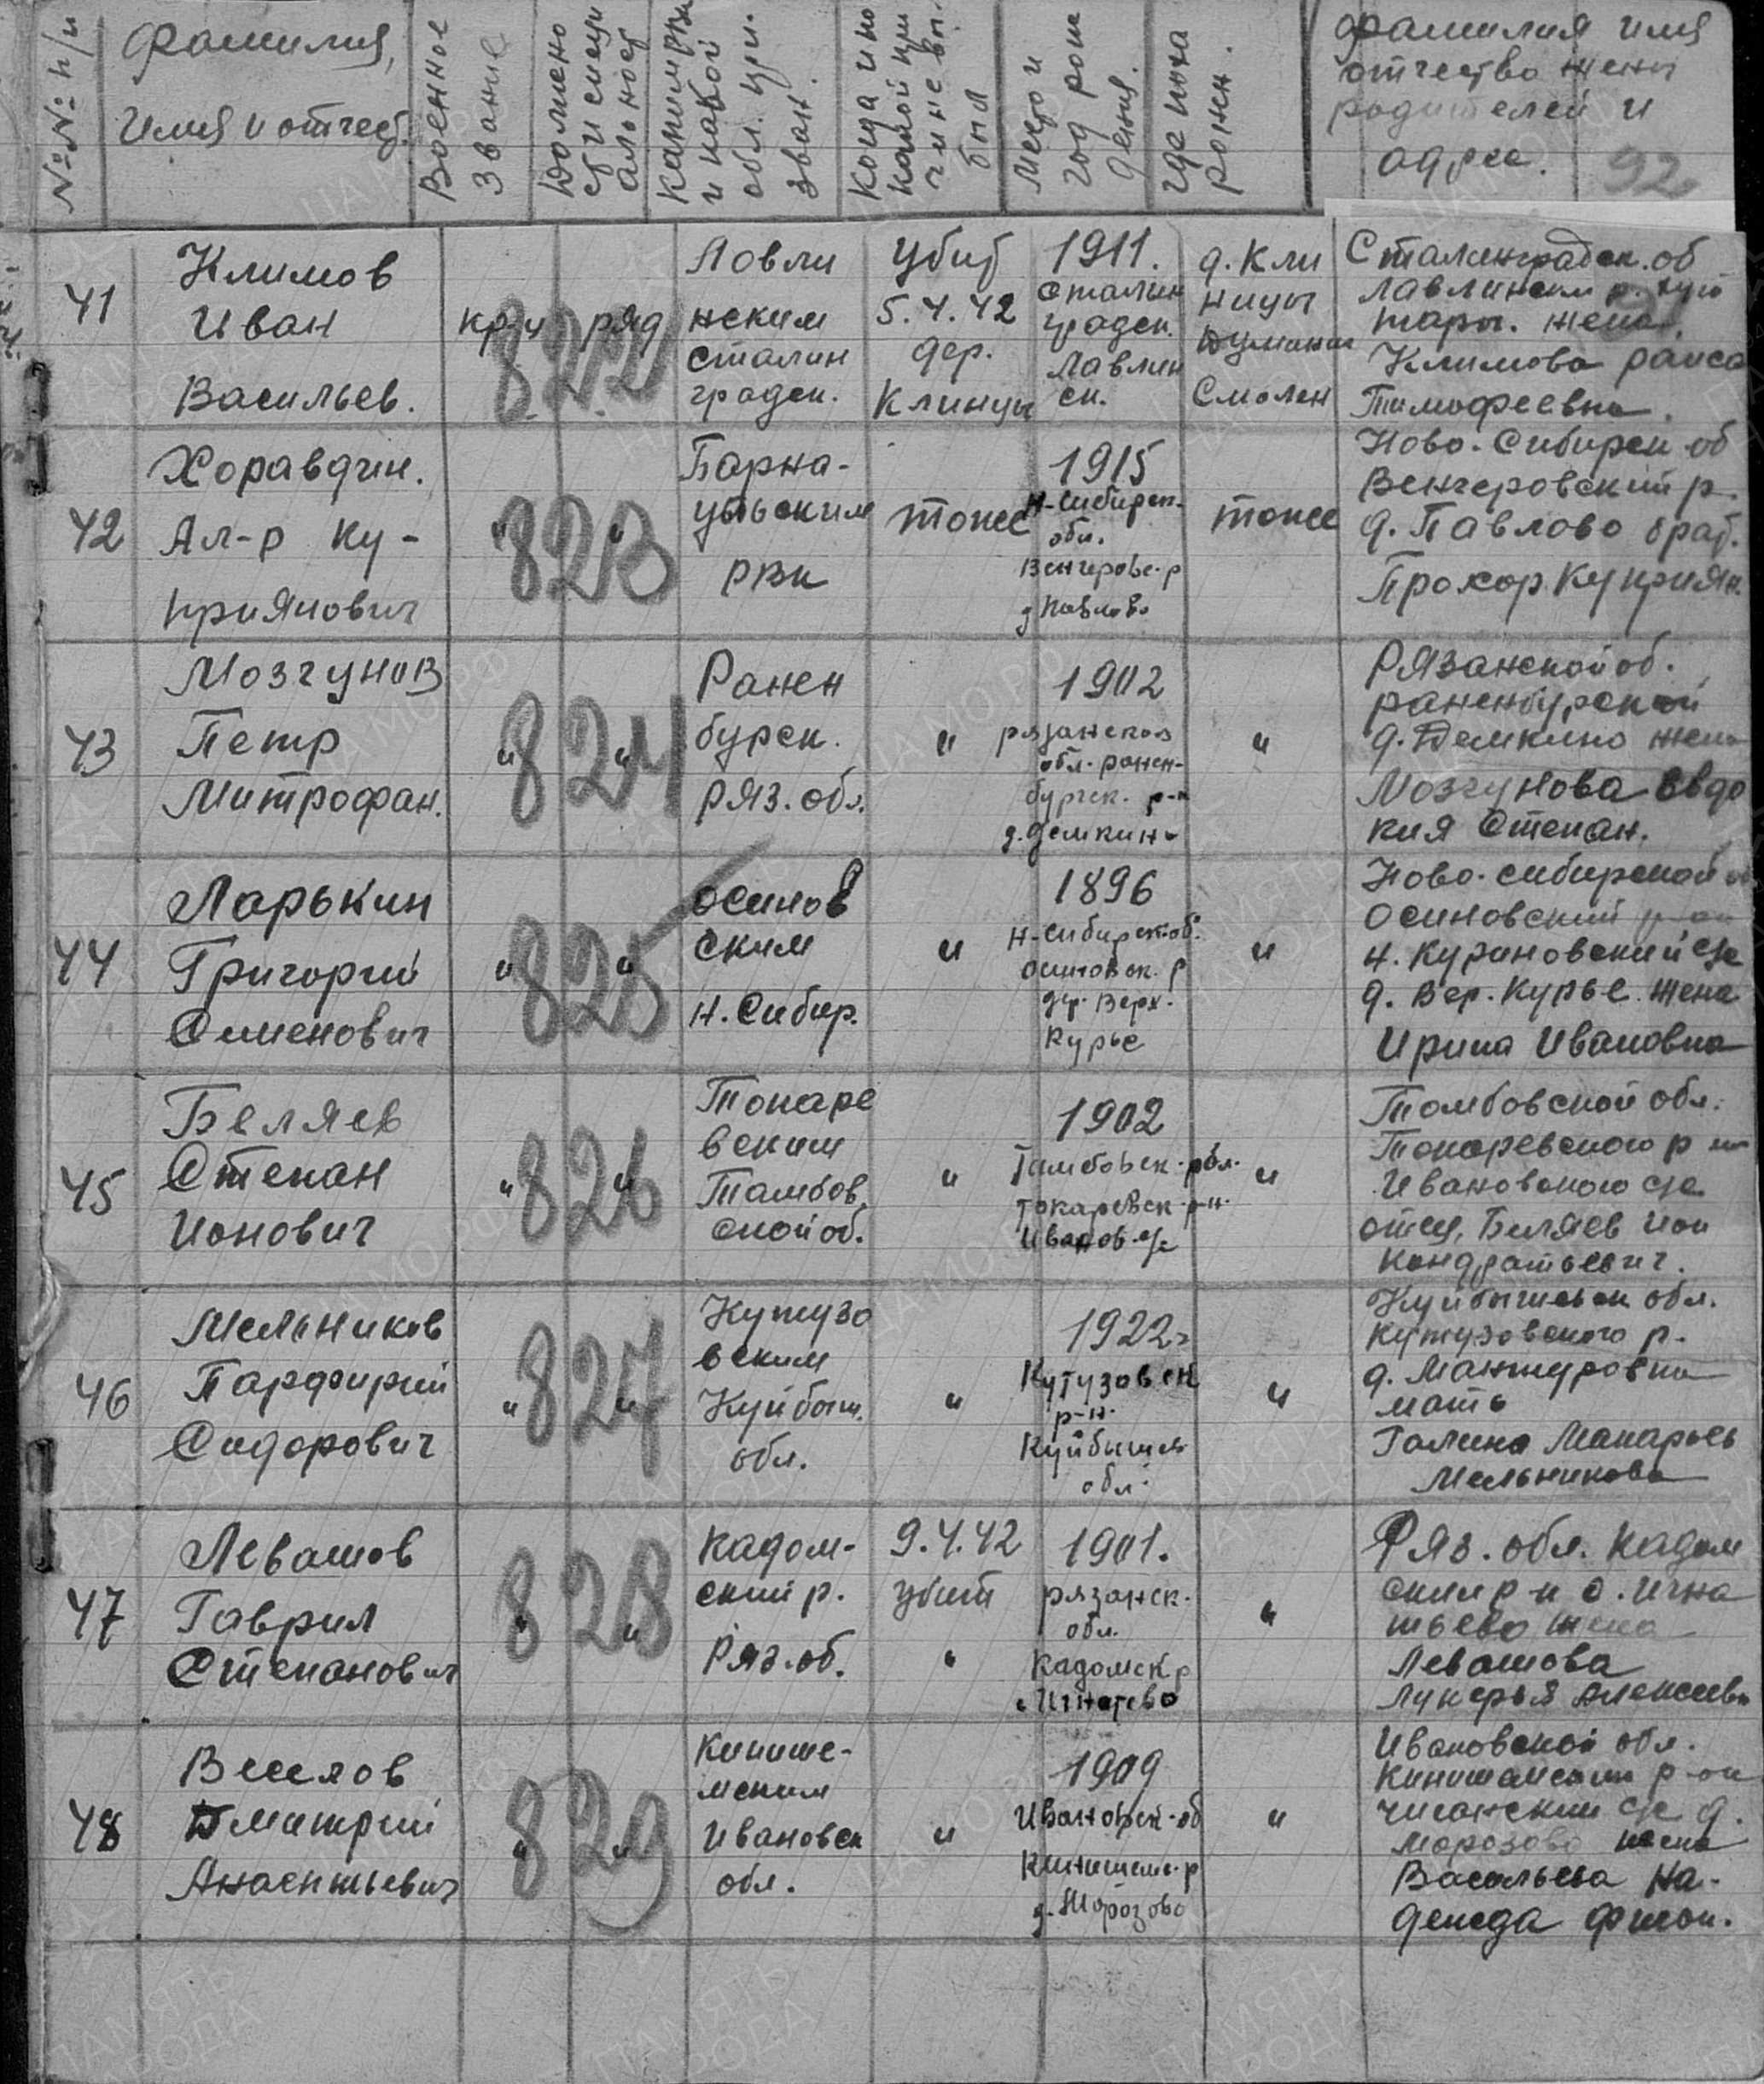 №№ п/п
Фамилия,
имя и отчест.
Военное
звание
Должно
сть и специ
альност
Каким РВК
и какой
обл. при
зван.
Когда и по
какой при
чине вы
был
Место и
год рож
дения.
где похо
ронен.
Фамилия имя
отчество жены
родителей и
адрес.
92
41
Климов
Иван
Васильев.
кр-ц
ряд
822
Ловли
нским
Сталин
градск.
Убит
5.4.42
дер.
Клинцы
1911.
Сталин
градск.
Лавлин
ск.
д. Кли
ницы
Думинич
Смолен
Сталинградск. об
Лавлинском р.
жена
Климова Раиса
Тимофеевна.
42
Хоравдин.
Ал-р Ку-
приянович
" 823 "
Барна-
ульским
РВК
тоже
1915
Н-Сибирск.
обл.
Венгеровс. р
д Павлово
тоже
Ново-Сибирск об
Венгеровский р.
д. Павлово брат.
Прохор Куприян.
43
Мозгунов
Петр
Митрофан.
" 824 "
Ранен
бурск.
Ряз. обл.
"
1902
рязанская
обл. ранен-
бургск. р-н
д. Демкино
"
Рязанской об.
раненбурской
д. Демкино жена
Мозгунова Евдо
кия Степан.
44
Ларькин
Григорий
Семенович
" 825 "
Осинов
ским
Н. Сибир.
"
1896
Н-Сибирск. об.
Осиновск. р
др. Верх.
Курье
"
Ново-Сибирской
Осиновский р-он
Н. Куриновский с/с
д. Вер. Курье. жена
Ирина Ивановна
45
Беляев
Степан
Ионович
" 826 "
Токаре
вским
Тамбов
ской об.
"
1902
Тамбовск. обл.
Токаревск. р-н.
Иванов. с/с
"
Тамбовской обл.
Токаревского р-н
Ивановского с/с
отец, Беляев Ион
Кондратьевич.
46
Мельников
Парфирий
Сидорович
" 827 "
Кутузо
вским
Куйбыш.
обл.
"
1922г
Кутузовск
р-н.
Куйбышев
обл.
"
Куйбышевск обл.
Кутузовского р.
д. Манжуровка
мать
Галина Макарьев
Мельникова
47
Левашов
Гаврил
Степанович
" 828 "
Кадом-
ский р.
Ряз. об.
9.4.42
убит
"
1901.
рязанск.
обл.
Кадомск р
с Игнатево
"
Ряз. обл. Кадом
ский р-н с. Игна
тьево жена
Левашова
Лукерья Алексеевн
48
Веселов
Дмитрий
Анаентьевич
" 829 "
Кинише-
мским
Ивановск
обл.
"
1909
Ивановск. об
Кинишемс. р
д. Морозово
"
Ивановской обл.
Кинишемский р-он
с/с д.
Морозово жена
Васильева На-
дежда